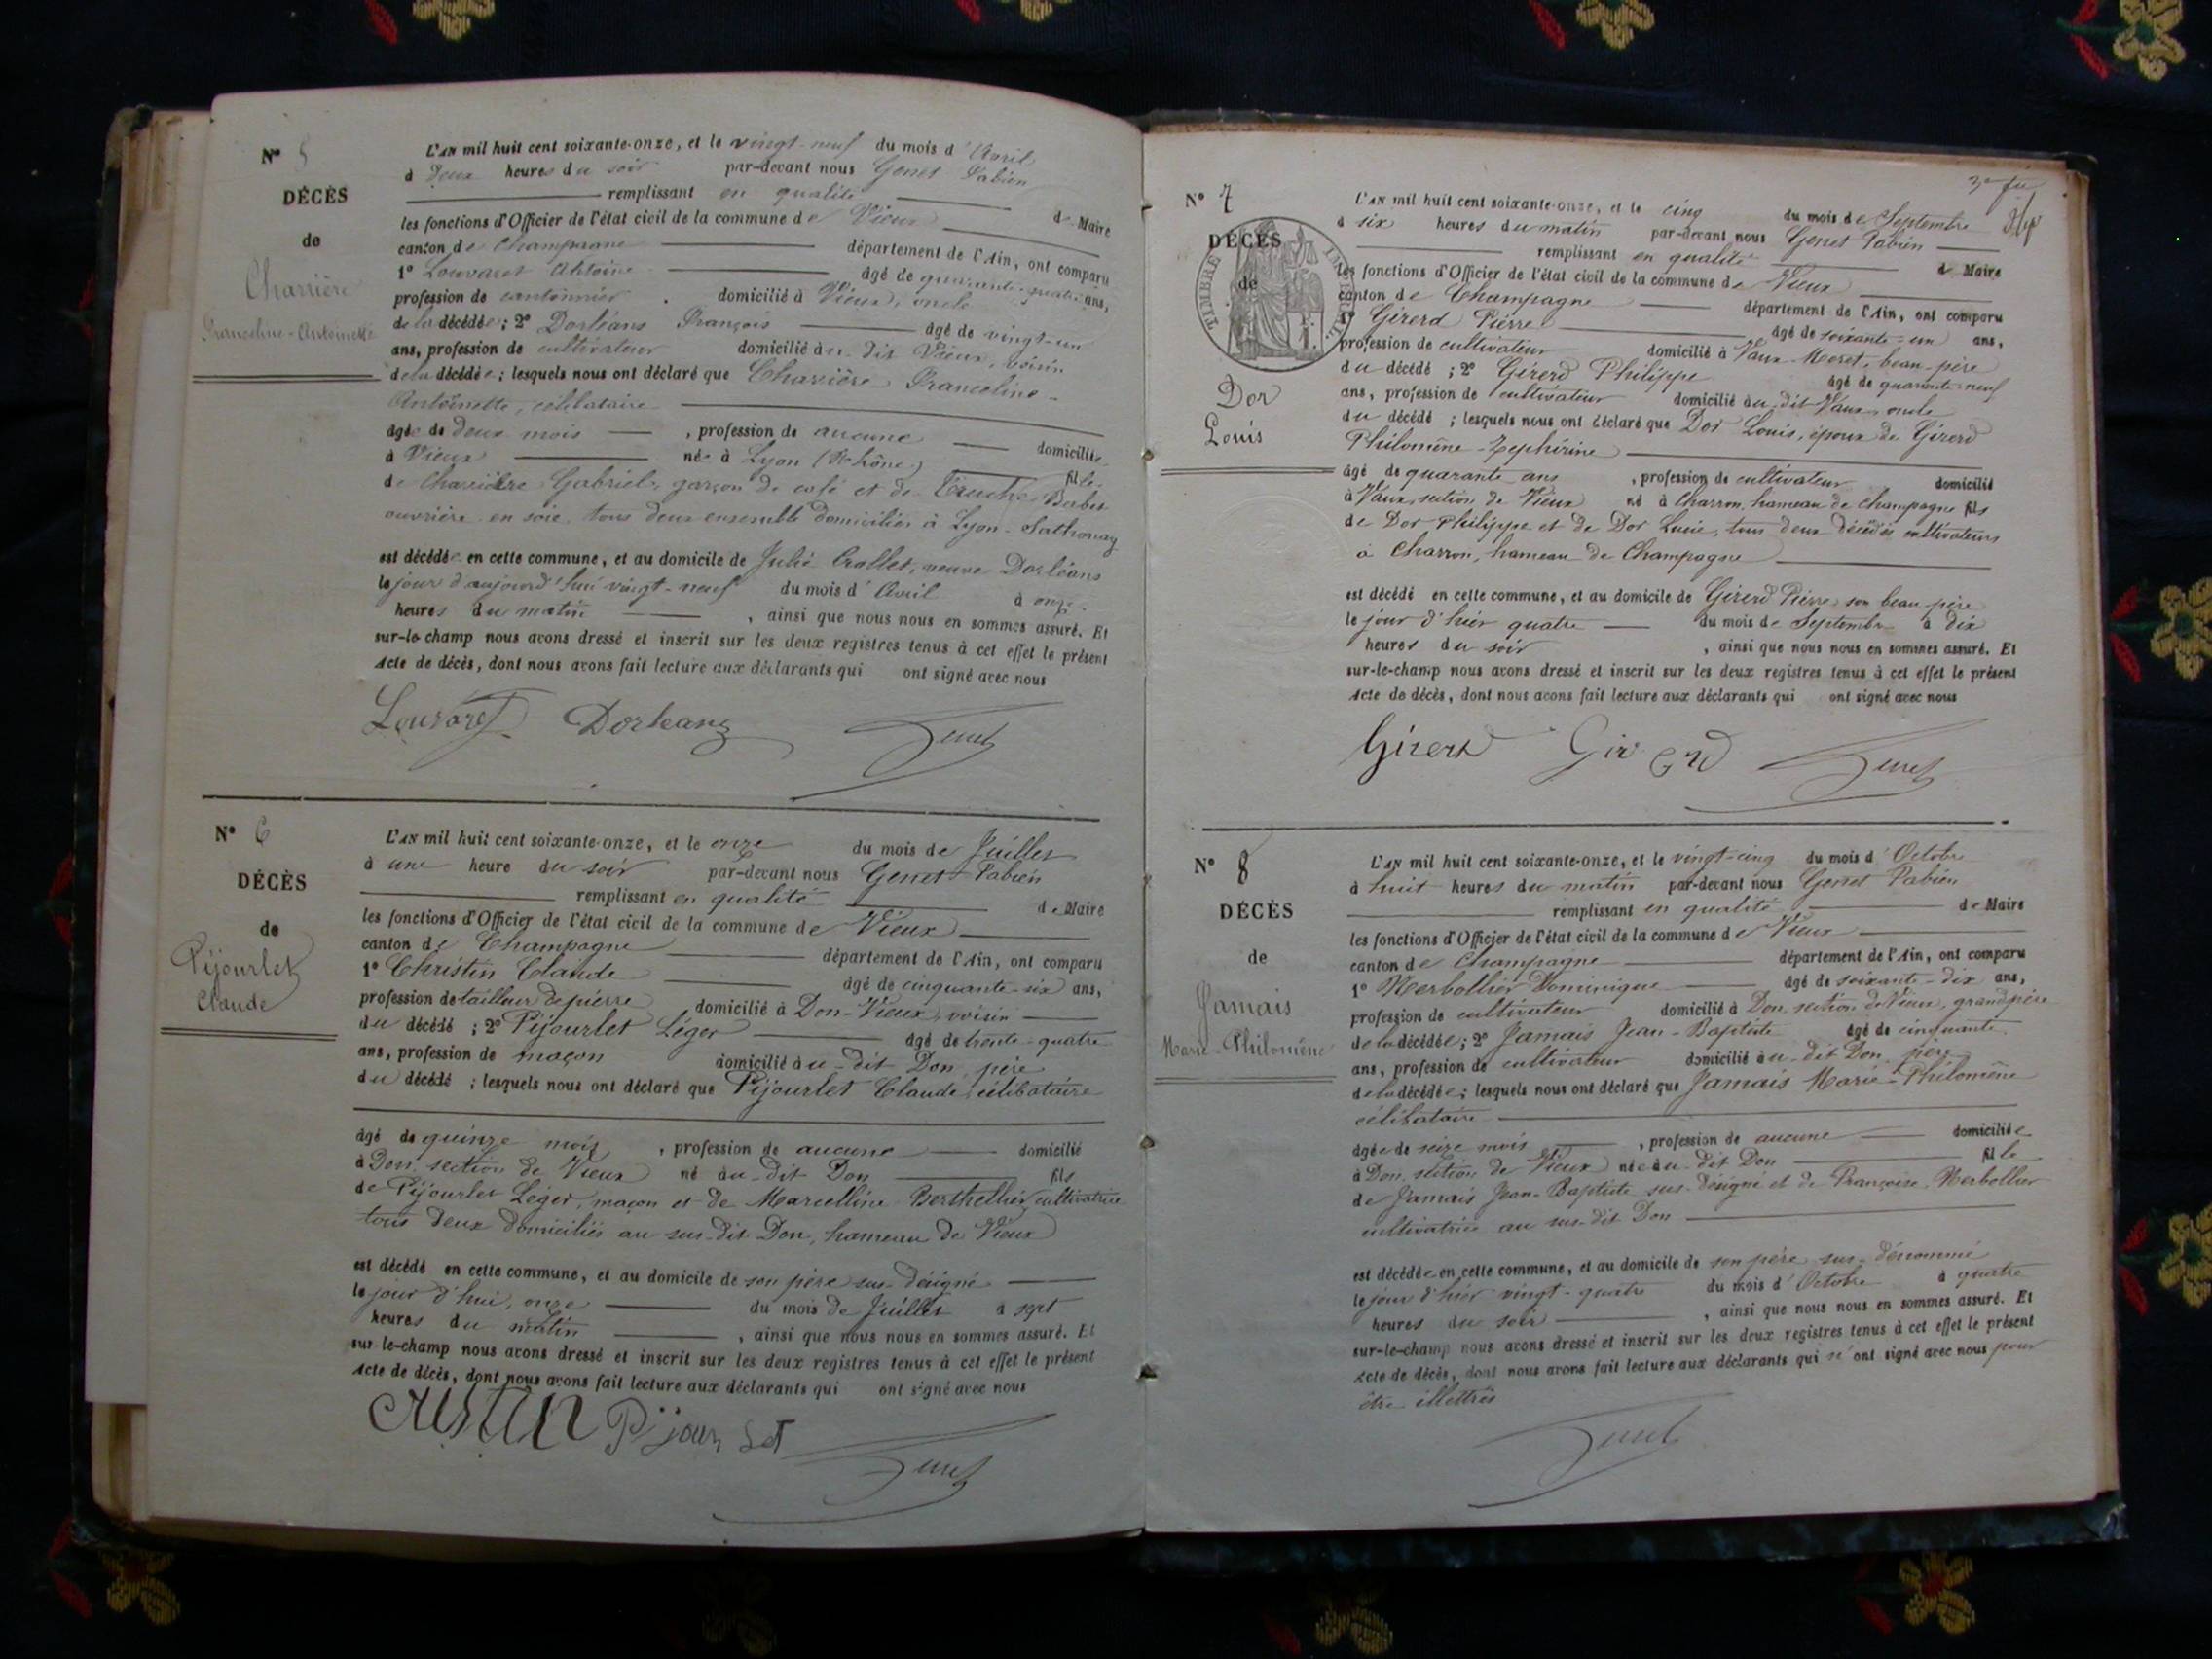 N° 5
DÉCÈS
de
Charrière
Franceline-Antoinette
L'AN mil huit cent soixante-onze, et le vingt-neuf du mois d'Avril
à deux heures du soir par-devant nous Genet Fabien
remplissant en qualité de Maire
les fonctions d'Officier de l'état civil de la commune de Vieux
canton de Champagne département de l'Ain, ont comparu
1° Louvaret Antoine âgé de quarante-quatre ans,
profession de cantonnier domicilié à Vieux, oncle
de la décédée; 2° Dorléans François âgé de vingt-un
ans, profession de cultivateur domicilié au-dit Vieux, voisin
de la décédée; lesquels nous ont déclaré que Charrière Franceline-
Antoinette, célibataire
âgée de deux mois, profession de aucune domiciliée
à Vieux née à Lyon (Rhône) fille
de Charrière Gabriel, garçon de café et de
ouvrière en soie, tous deux ensemble domiciliés à Lyon-Sathonay
est décédée en cette commune, et au domicile de Julie Crollet, veuve Dorléans
le jour d'aujourd'hui vingt-neuf du mois d'Avril à onze
heures du matin, ainsi que nous nous en sommes assuré. Et
sur-le-champ nous avons dressé et inscrit sur les deux registres tenus à cet effet le présent
Acte de décès, dont nous avons fait lecture aux déclarants qui ont signé avec nous
Louvaret Dorleans Genet
N° 6
DÉCÈS
de
Pijourlet
Claude
L'AN mil huit cent soixante-onze, et le onze du mois de Juillet
à une heure du soir par-devant nous Genet Fabien
remplissant en qualité de Maire
les fonctions d'Officier de l'état civil de la commune de Vieux
canton de Champagne département de l'Ain, ont comparu
1° Christin Claude âgé de cinquante-six ans,
profession de tailleur de pierre domicilié à Don-Vieux, voisin
du décédé; 2° Pijourlet Léger âgé de trente-quatre
ans, profession de maçon domicilié au-dit Don, père
du décédé; lesquels nous ont déclaré que Pijourlet Claude, célibataire
âgé de quinze mois, profession de aucune domicilié
à Don, section de Vieux né au-dit Don fils
de Pijourlet Léger, maçon et de Marcelline Berthellier, cultivatrice
tous deux domiciliés au sus-dit Don, hameau de Vieux
est décédé en cette commune, et au domicile de son père sus-désigné
le jour d'hui, onze du mois de Juillet à sept
heures du matin, ainsi que nous nous en sommes assuré. Et
sur-le-champ nous avons dressé et inscrit sur les deux registres tenus à cet effet le présent
Acte de décès, dont nous avons fait lecture aux déclarants qui ont signé avec nous
Pijourlet Genet
3e
N° 7
DÉCÈS
de
TIMBRE IMPÉRIAL
Dor
Louis
L'AN mil huit cent soixante-onze, et le cinq du mois de Septembre
à six heures du matin par-devant nous Genet Fabien
remplissant en qualité de Maire
les fonctions d'Officier de l'état civil de la commune de Vieux
canton de Champagne département de l'Ain, ont comparu
1° Girerd Pierre âgé de soixante-un ans,
profession de cultivateur domicilié à Vaux-Moret, beau-père
du décédé; 2° Girerd Philippe âgé de quarante-neuf
ans, profession de cultivateur domicilié au-dit Vaux, oncle
du décédé; lesquels nous ont déclaré que Dor Louis, époux de Girerd
Philomène-Zephirine
âgé de quarante ans, profession de cultivateur domicilié
à Vaux, section de Vieux né à Charron, hameau de Champagne fils
de Dor Philippe et de Dor Lucie, tous deux décédés cultivateurs
à Charron, hameau de Champagne
est décédé en cette commune, et au domicile de Girerd Pierre son beau-père
le jour d'hier quatre du mois de Septembre à dix
heures du soir, ainsi que nous nous en sommes assuré. Et
sur-le-champ nous avons dressé et inscrit sur les deux registres tenus à cet effet le présent
Acte de décès, dont nous avons fait lecture aux déclarants qui ont signé avec nous
Girerd Girerd Genet
N° 8
DÉCÈS
de
Jamais
Marie-Philomène
L'AN mil huit cent soixante-onze, et le vingt-cinq du mois d'Octobre
à huit heures du matin par-devant nous Genet Fabien
remplissant en qualité de Maire
les fonctions d'Officier de l'état civil de la commune de Vieux
canton de Champagne département de l'Ain, ont comparu
1° Merbollier Dominique âgé de soixante-dix ans,
profession de cultivateur domicilié à Don, section de Vieux, grand père
de la décédée; 2° Jamais Jean-Baptiste âgé de cinquante
ans, profession de cultivateur domicilié au-dit Don, père
de la décédée; lesquels nous ont déclaré que Jamais Marie-Philomène
célibataire
âgée de seize mois, profession de aucune domiciliée
à Don, section de Vieux née au-dit Don fille
de Jamais Jean-Baptiste sus-désigné et de Françoise Merbollier
cultivatrice au sus-dit Don
est décédée en cette commune, et au domicile de son père sus-dénommé
le jour d'hier vingt-quatre du mois d'Octobre à quatre
heures du soir, ainsi que nous nous en sommes assuré. Et
sur-le-champ nous avons dressé et inscrit sur les deux registres tenus à cet effet le présent
Acte de décès, dont nous avons fait lecture aux déclarants qui n'ont signé avec nous pour
être illettrés
Genet